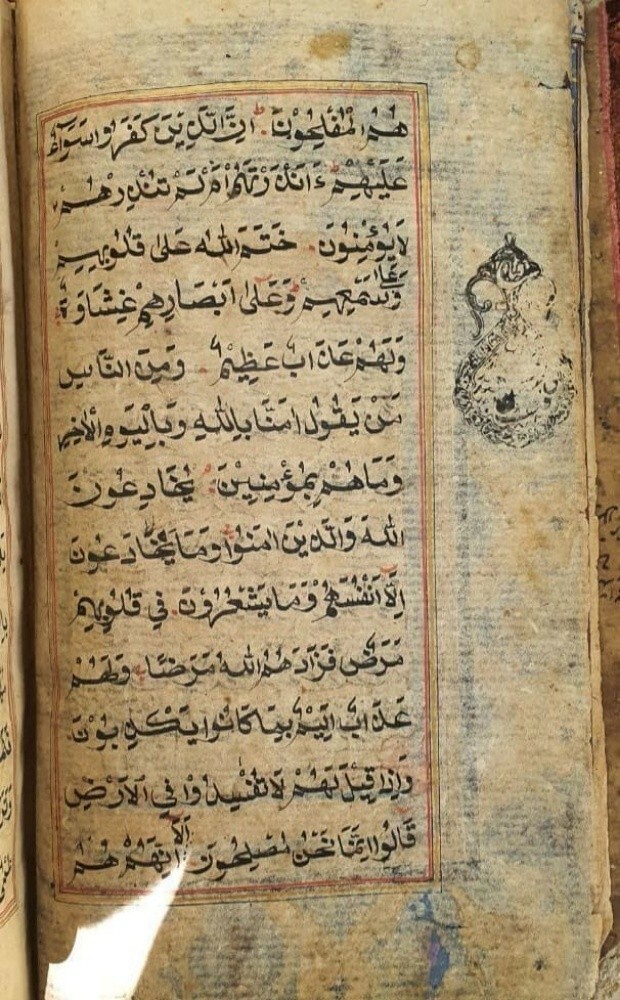 هُمُ الْمُفْلِحُوْنَ اِنَّ الَّذِيْنَ كَفَرُوا سَوَآءٌ
عَلَيْهِمْ ءَاَنْذَرْتَهُمْ اَمْ لَمْ تُنْذِرْهُمْ
لَا يُؤْمِنُوْنَ خَتَمَ اللّٰهُ عَلٰى قُلُوْبِهِمْ
وَعَلٰى سَمْعِهِمْ وَعَلٰى اَبْصَارِهِمْ غِشَاوَةٌ
وَلَهُمْ عَذَابٌ عَظِيْمٌ وَمِنَ النَّاسِ
مَنْ يَقُوْلُ اٰمَنَّا بِاللّٰهِ وَبِالْيَوْمِ الْاٰخِرِ
وَمَا هُمْ بِمُؤْمِنِيْنَ يُخَادِعُوْنَ
اللّٰهَ وَالَّذِيْنَ اٰمَنُوْا وَمَا يَخَادَعُوْنَ
اِلَّا اَنْفُسَهُمْ وَمَا يَشْعُرُوْنَ فِيْ قُلُوْبِهِمْ
مَرَضٌ فَزَادَهُمُ اللّٰهُ مَرَضًا وَلَهُمْ
عَذَابٌ اَلِيْمٌ بِمَا كَانُوْا يَكْذِبُوْنَ
وَاِذَا قِيْلَ لَهُمْ لَا تُفْسِدُوْا فِي الْاَرْضِ
قَالُوْا اِنَّمَا نَحْنُ مُصْلِحُوْنَ اَلَا اِنَّهُمْ هُمُ